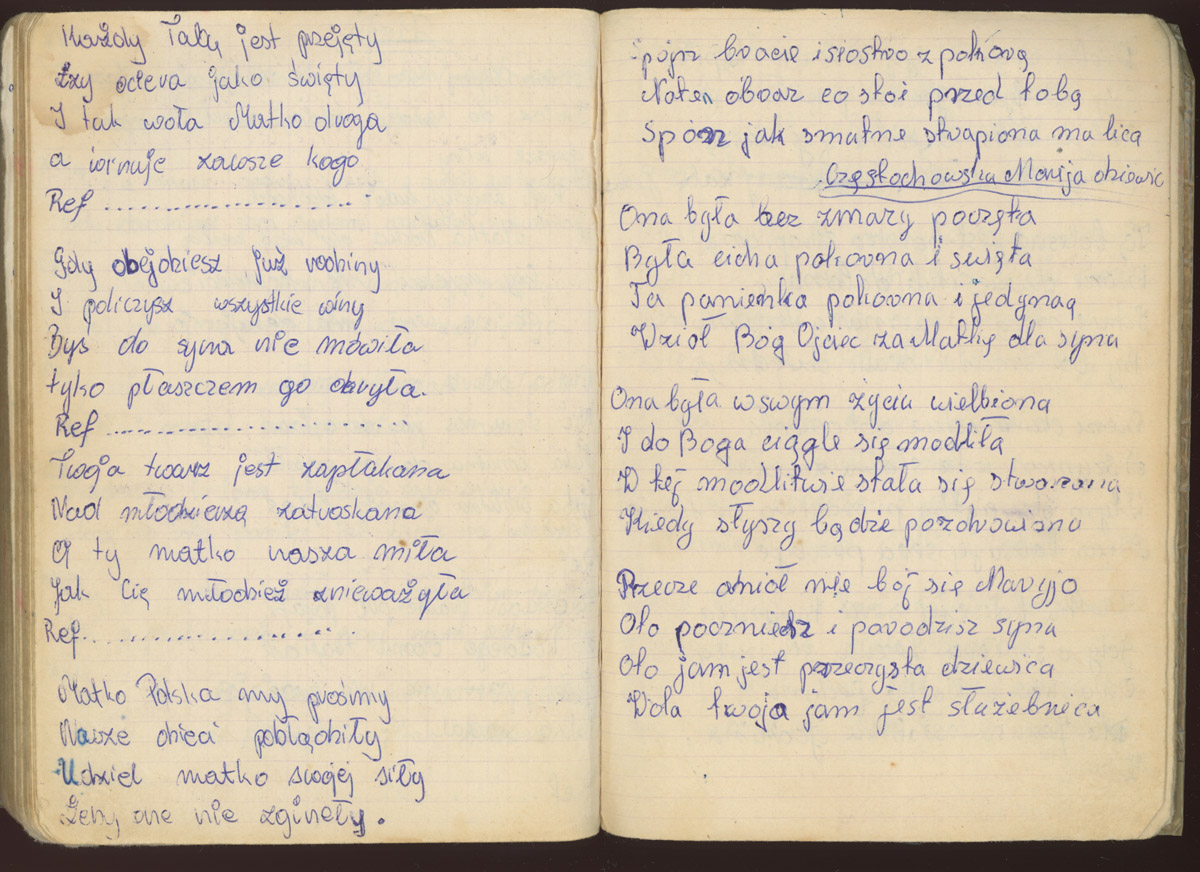 Każdy Tobą jest przejęty
Łzy ociera jako święty
I tak woła Matko droga
a winuje zawsze kogo
Ref ........................
Gdy obejdziesz już rodziny
I policzysz wszystkie winy
Byś do syna nie mówiła
tylko płaszczem go okryła.
Ref ........................
Twoja twarz jest zapłakana
Nad młodzieżą zatroskana
O ty matko nasza miła
Jak Cię młodzież znieważyła
Ref ........................
Matko Polska my prośmy
Nasze dzieci pobłądziły
Udziel matko swojej siły
Żeby one nie zgineły.
spójrz bracie i siostro z pokorą
Na ten obraz co stoi przed tobą
Spórz jak smutne strapiona ma lica
Częstochowska Marija dziewic
Ona była bez zmazy poczęta
Była cicha pokorna i święta
Ta panienka pokorna i jedyną
Wziół Bóg Ojciec za Matkę dla syna
Ona była w swym życiu wielbiona
I do Boga ciągle się modliła
W tej modlitwie stała się
Kiedy słyszy będzie pozdrowiona
Rzecze anioł nie bój się Maryjo
Oto poczniedz i porodzisz syna
Oto jam jest przeczysta dziewica
Wola twoja jam jest służebnica